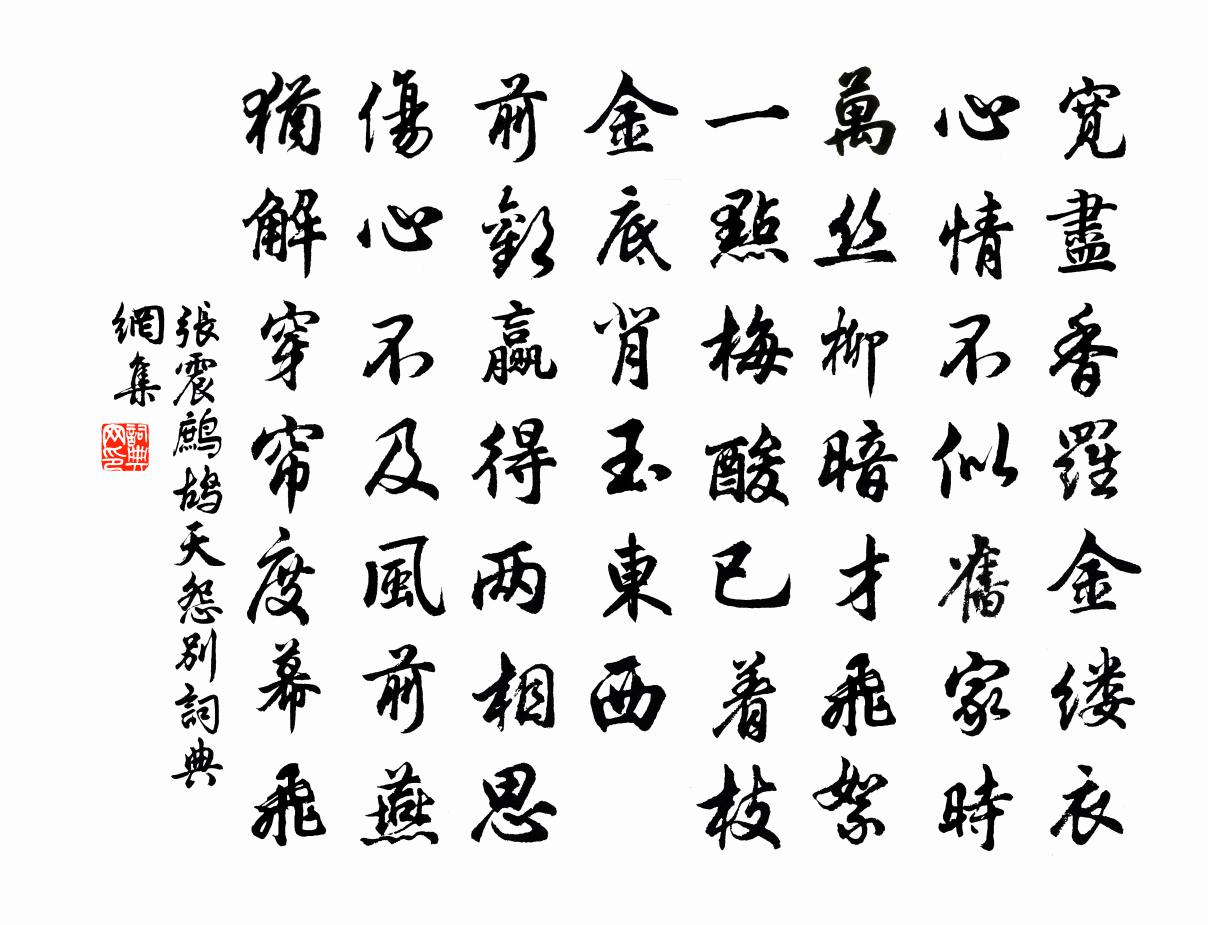 寬盡香羅金缕衣
心情不似舊家時
萬丝柳暗才飛絮
一點梅酸已着枝
金底背玉東西
前歡贏得两相思
傷心不及風前燕
猶解穿帘度幕飛
張震鷓鴣天怨别詞典
網集
詞典
网印